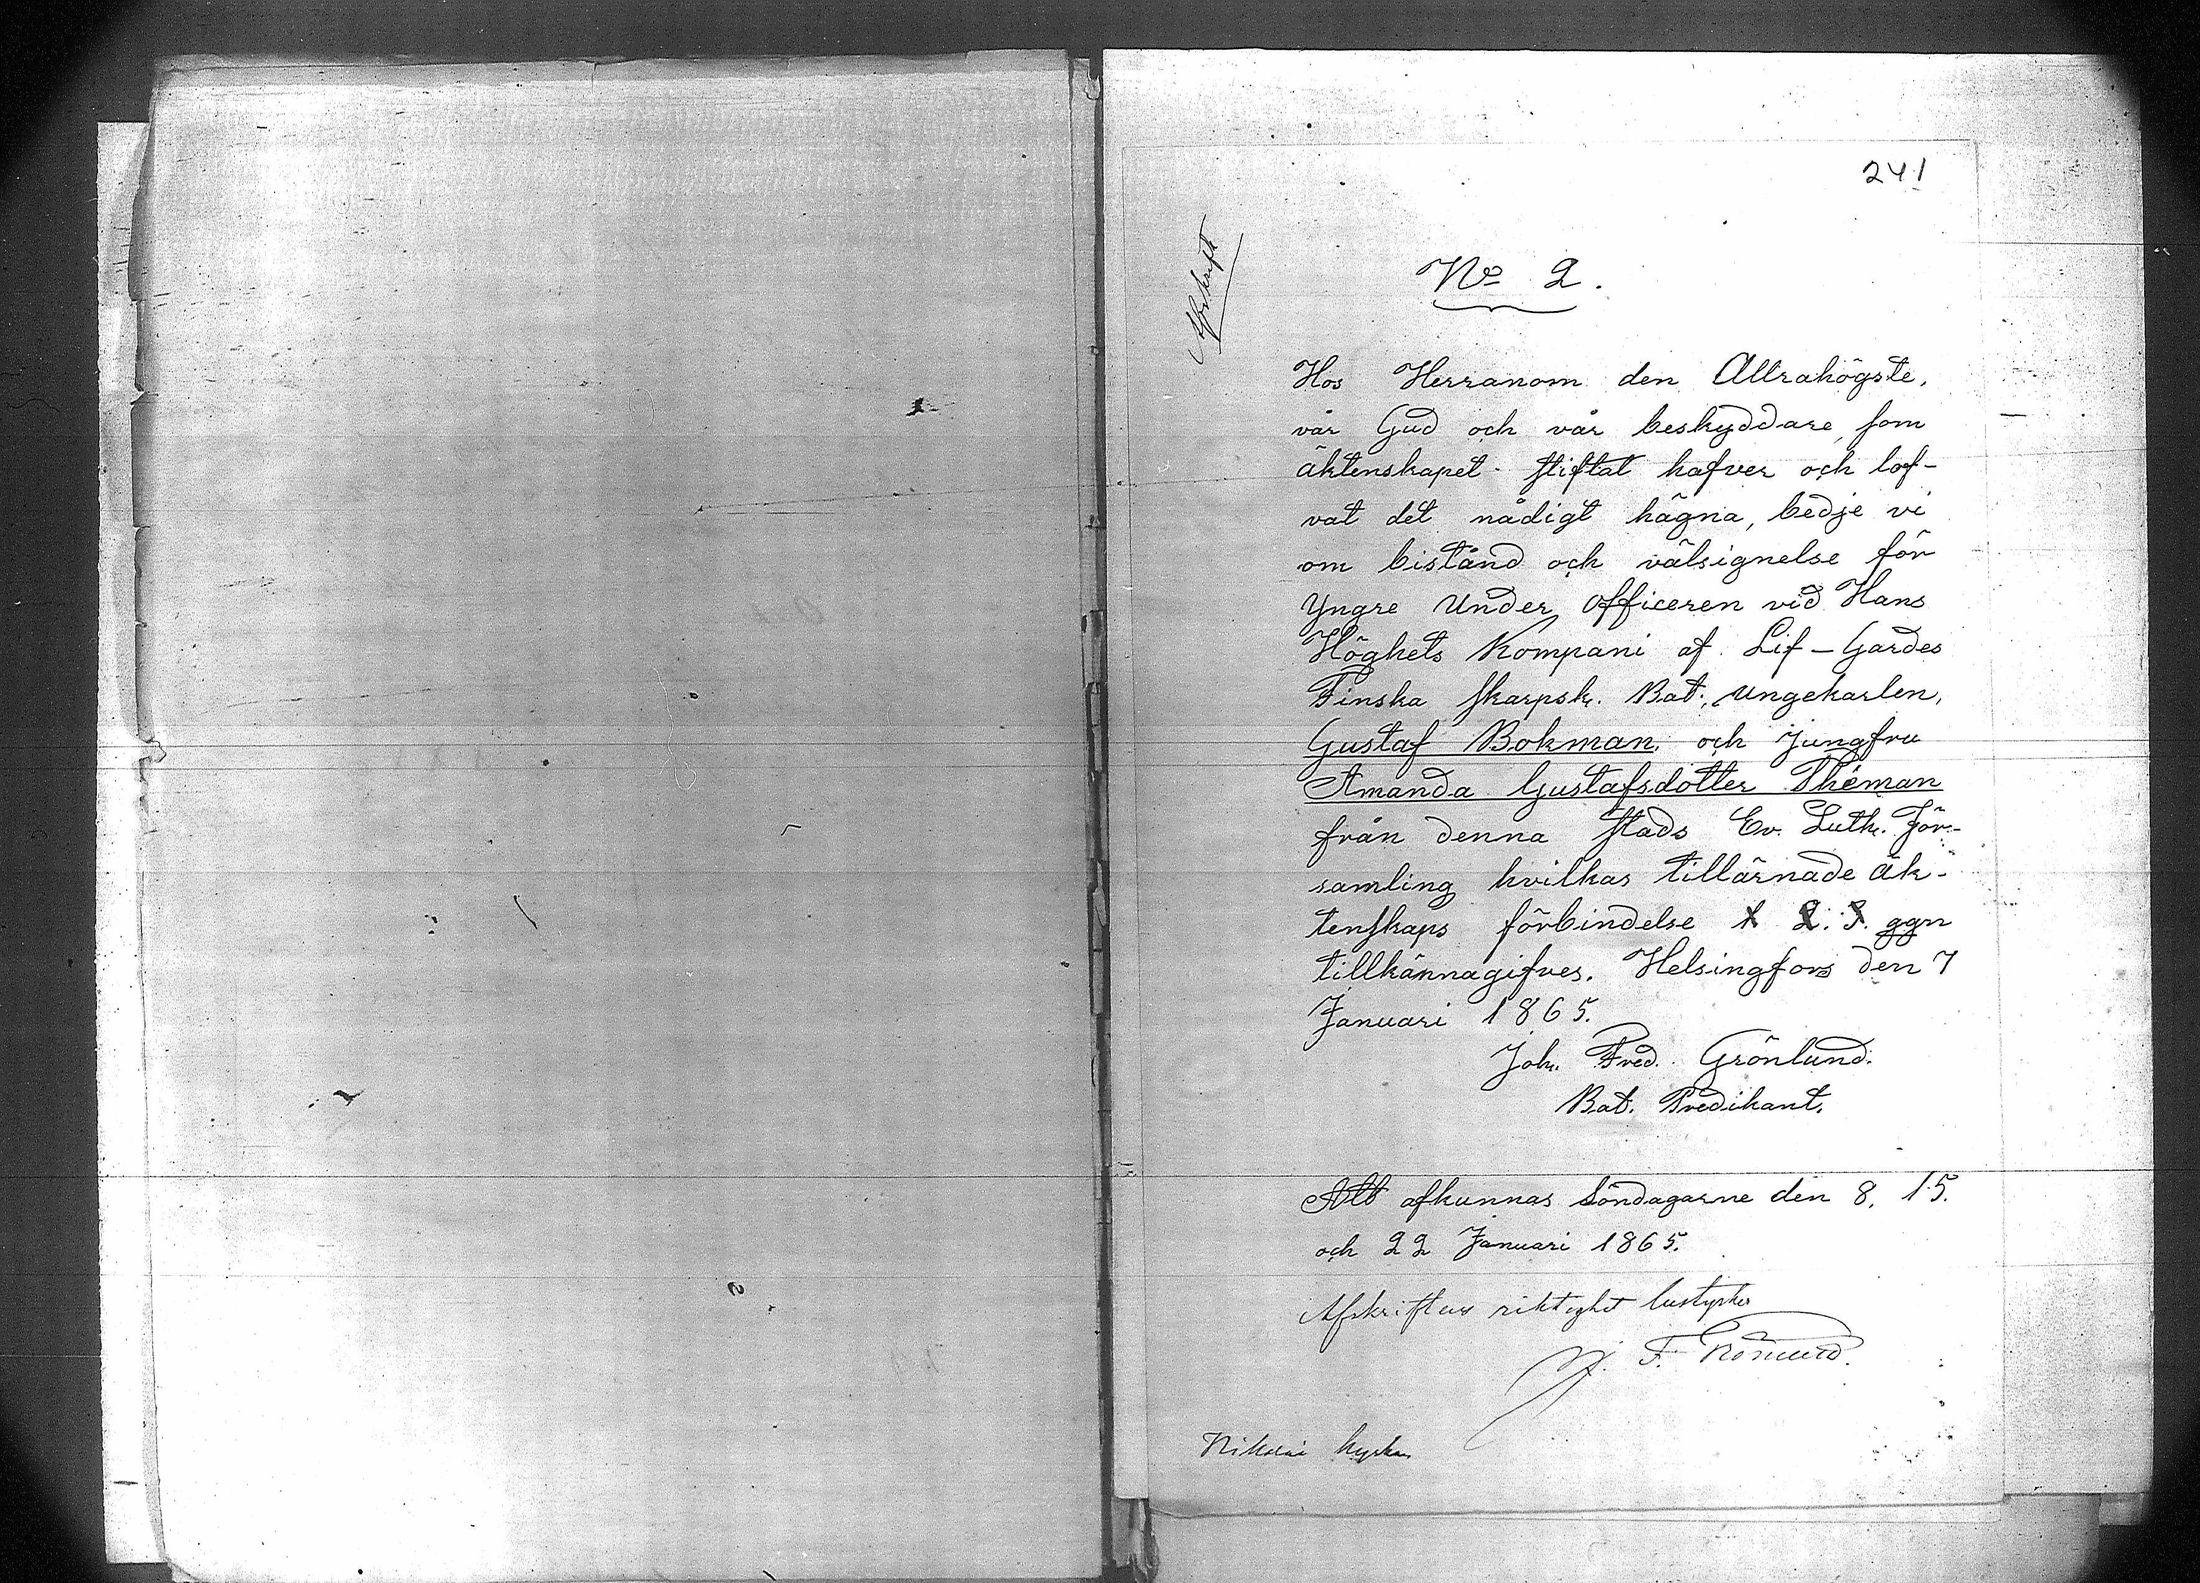 241
Afskrift
No 2.
Hos Herranom den Allrahögste,
vår Gud och vår beskyddare, som
äktenskapet stiftat hafver och lof-
vat det nådigt hägna, bedje vi
om bistånd och välsignelse för
Yngre Under Officeren vid Hans
Höghets Kompani af Lif-Gardes
Finska Skarpsk. Bat., Ungekarlen,
Gustaf Bokman, och Jungfru
Amanda Gustafsdotter Théman
från denna Stads Ev. Luth. För-
samling hvilkas tillärnade äk-
tenskaps förbindelse 1 2. 3. ggn
tillkännagifves. Helsingfors den 7
Januari 1865.
Joh. Fred. Grönlund.
Bat. Predikant.
Att afkunnas Söndagarne den 8, 15.
och 22 Januari 1865.
Afskriftens riktighet bestyrker
J. F. Grönlund.
Nikolai kyrkan